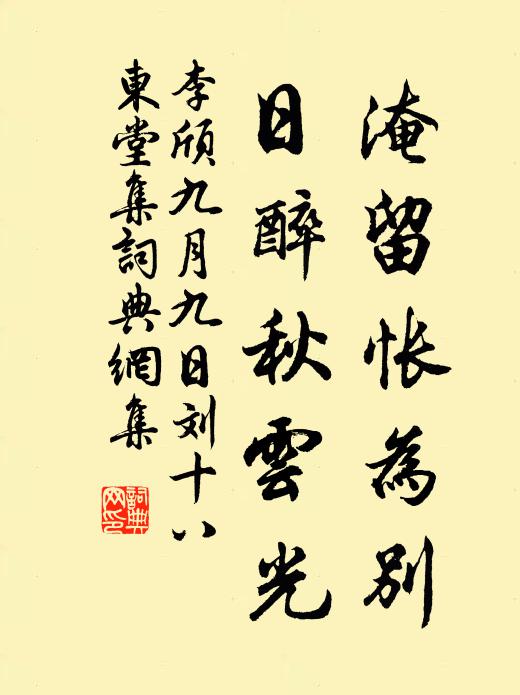 淹留怅為別
日醉秋雲光
李頎九月九日刘十八
東堂集詞典網集
詞典
网印